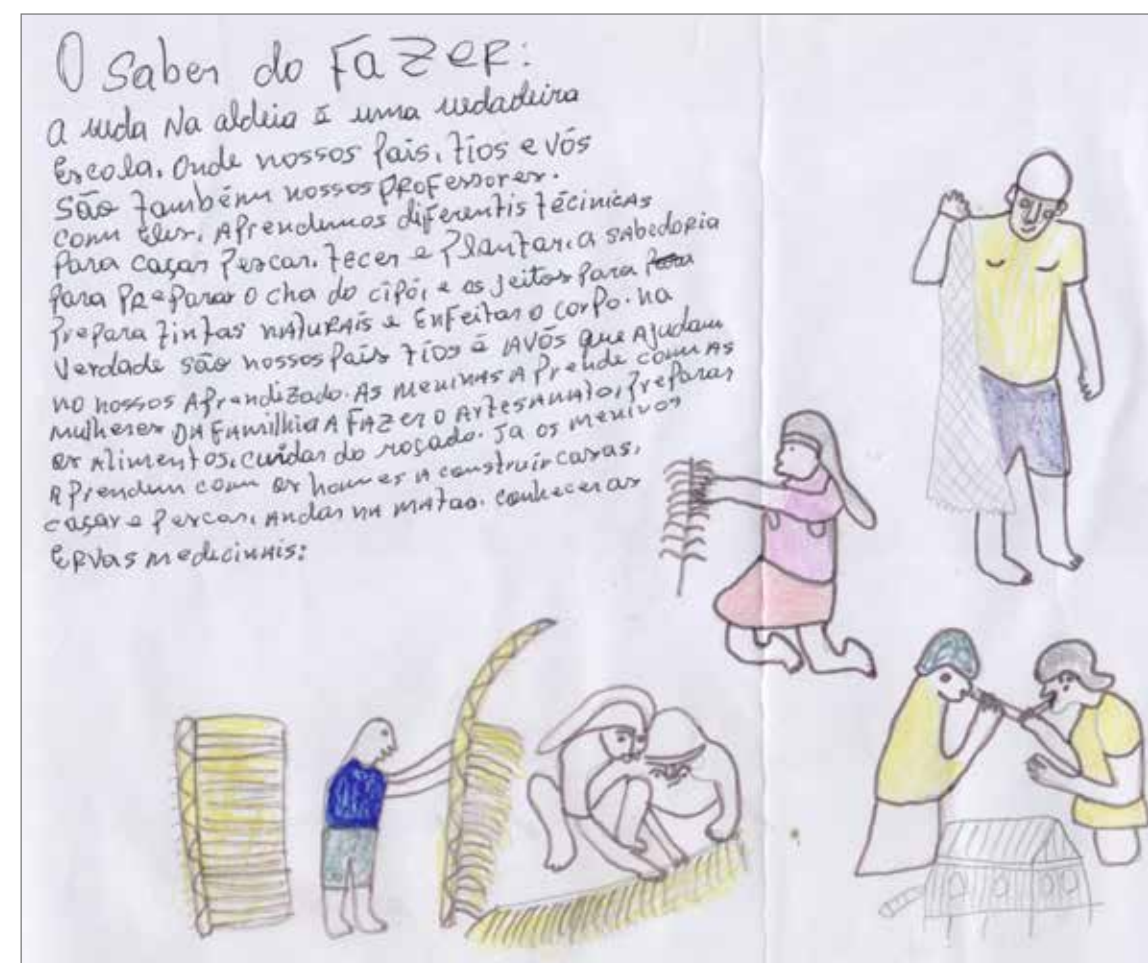 O Saber do FaZER:
a vida Na aldeia é uma verdadeira
Escola. Onde nossos Pais, Tios e vós
São Também nossos PROFessores.
Com Eles, Aprendemos diFerentis Técinicas
Para Caçar Pescar. Tecer e Plantar. a sabedoria
para PRePararo O cha do cipó, e os Jeitos Para
Prepara Tintas NATURAis e EnFeitar o corpo. na
Verdade são nossos Pais Tios e AVós que AJudam
no nossos Aprendizado. As meninas APrende com As
mulheres DA Familhia A FAZER O ArTesanato, Preparar
os Alimentos, cuidar do roçado. Ja os meninos
APrendem com os homes A construir casas,
caçar e Pescar, Andar na matao. conhecer as
ERVas medicinais: